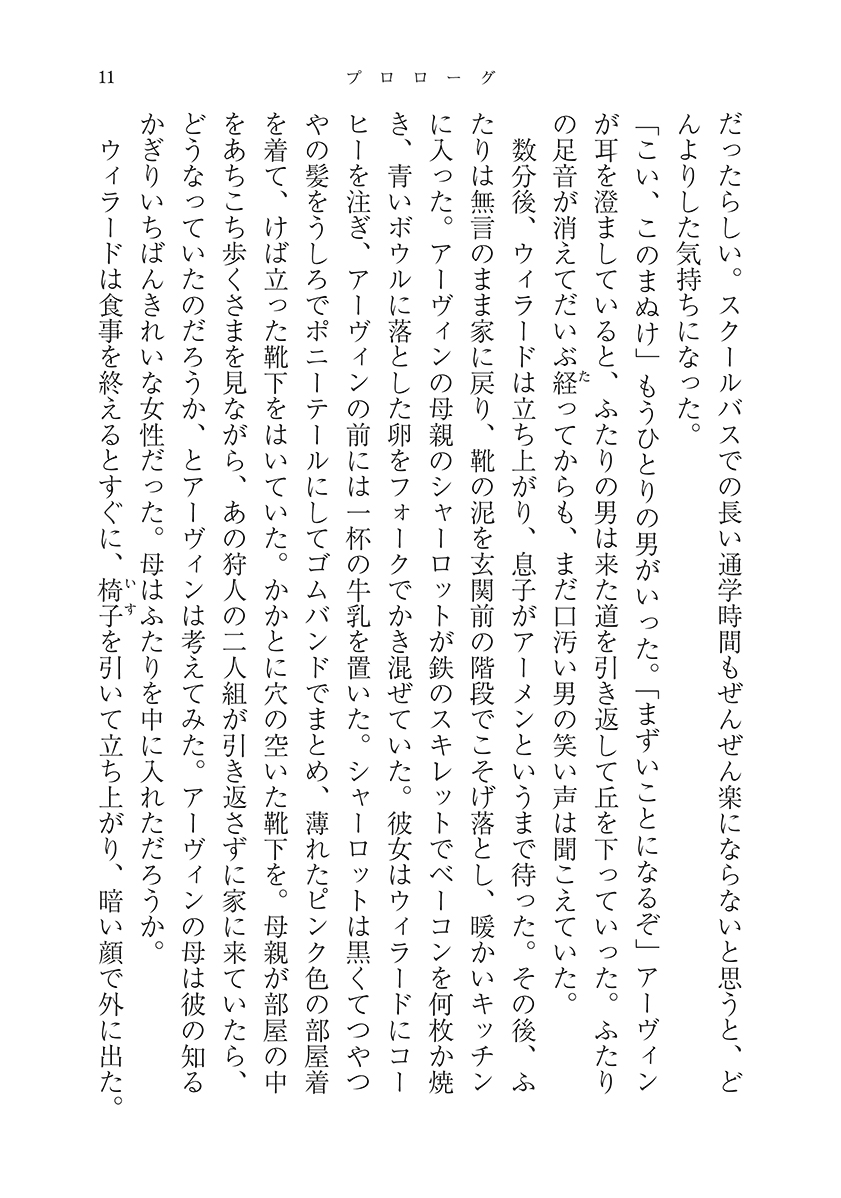 11
プロローグ
だったらしい。スクールバスでの長い通学時間もぜんぜん楽にならないと思うと、ど
んよりした気持ちになった。
「こい、このまぬけ」もうひとりの男がいった。「まずいことになるぞ」アーヴィン
が耳を澄ましていると、ふたりの男は来た道を引き返して丘を下っていった。ふたり
の足音が消えてだいぶ経ってからも、まだ口汚い男の笑い声は聞こえていた。
た
数分後、ウィラードは立ち上がり、息子がアーメンというまで待った。その後、ふ
たりは無言のまま家に戻り、靴の泥を玄関前の階段でこそげ落とし、暖かいキッチン
に入った。アーヴィンの母親のシャーロットが鉄のスキレットでベーコンを何枚か焼
き、青いボウルに落とした卵をフォークでかき混ぜていた。彼女はウィラードにコー
ヒーを注ぎ、アーヴィンの前には一杯の牛乳を置いた。シャーロットは黒くてつやつ
やの髪をうしろでポニーテールにしてゴムバンドでまとめ、薄れたピンク色の部屋着
を着て、けば立った靴下をはいていた。かかとに穴の空いた靴下を。母親が部屋の中
をあちこち歩くさまを見ながら、あの狩人の二人組が引き返さずに家に来ていたら、
どうなっていたのだろうか、とアーヴィンは考えてみた。アーヴィンの母は彼の知る
かぎりいちばんきれいな女性だった。母はふたりを中に入れただろうか。
ウィラードは食事を終えるとすぐに、椅子を引いて立ち上がり、暗い顔で外に出た。
いす